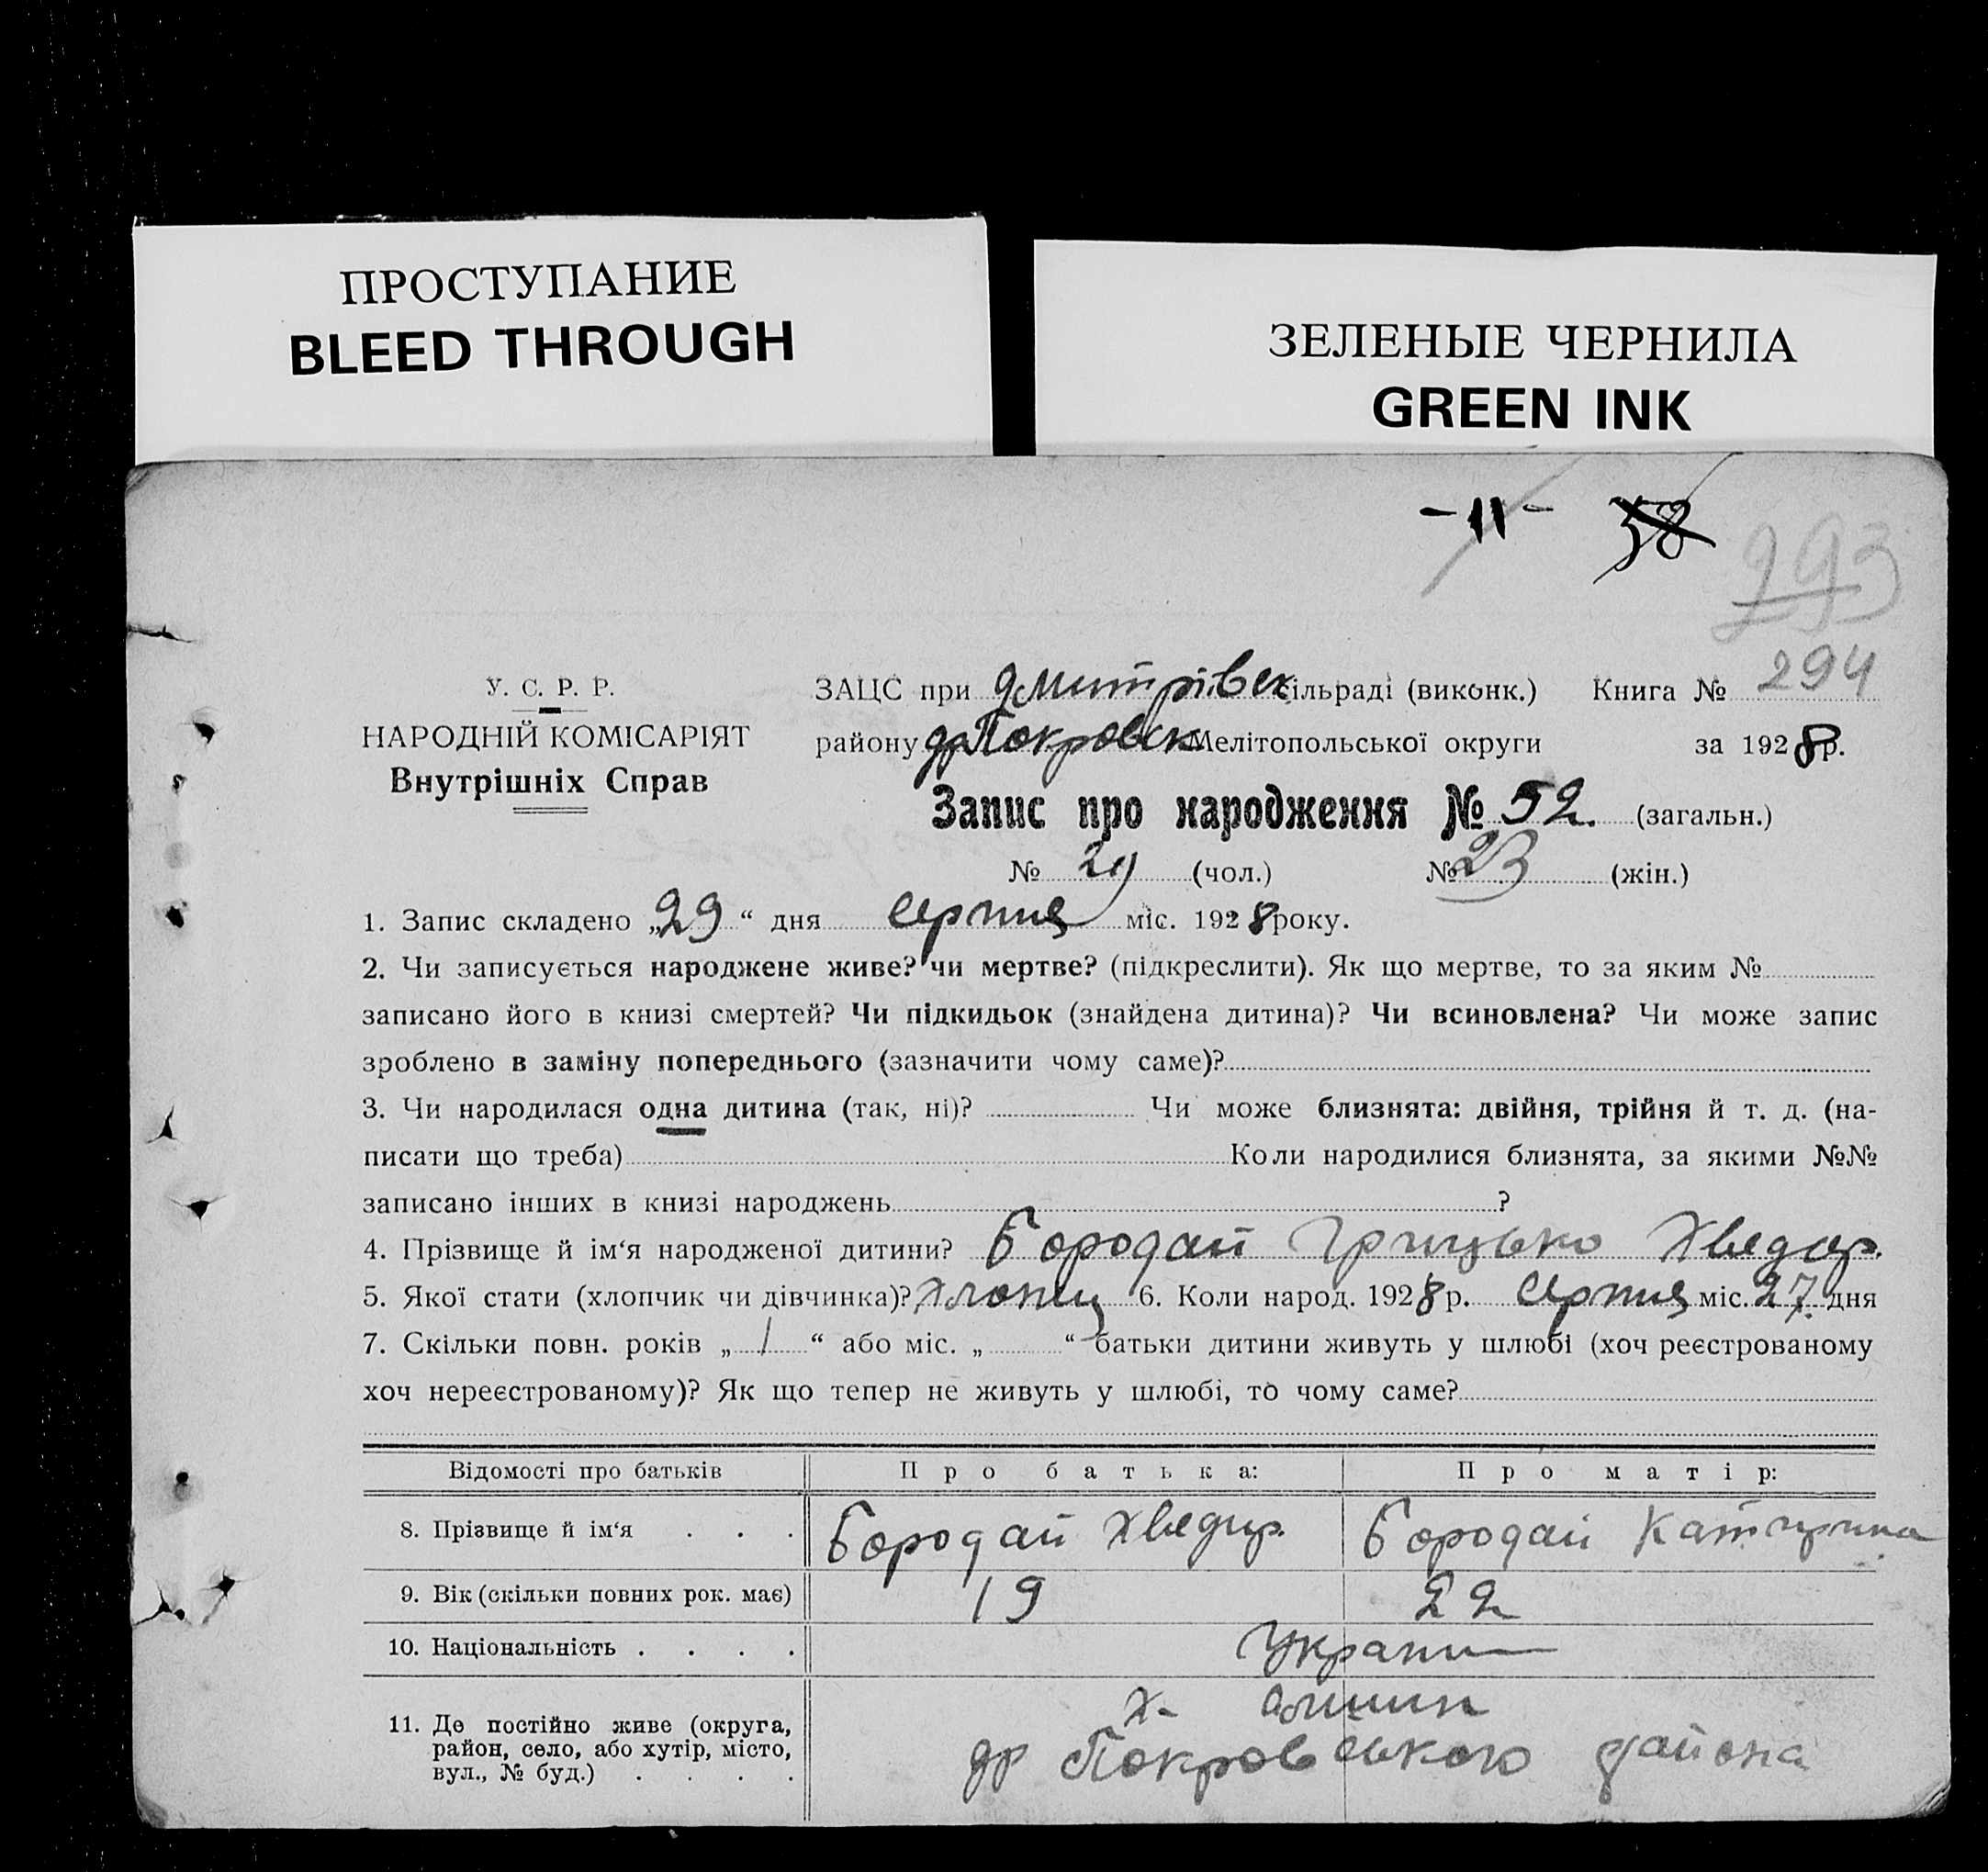 ПРОСТУПАНИЕ
BLEED THROUGH
ЗЕЛЕНЫЕ ЧЕРНИЛА
GREEN INK
-11- 58
293
294
У. С. Р. Р.
НАРОДНІЙ КОМІСАРІЯТ
Внутрішніх Справ
ЗАЦС при Дмитрівск сільраді (виконк.) Книга №
району др Покровск Мелітопольської округи за 1928 р.
Запис про народження № 52. (загальн.)
№ 29 (чол.) № 23 (жін.)
1. Запис складено „29“ дня серпня міс. 1928 року.
2. Чи записується народжене живе? чи мертве? (підкреслити). Як що мертве, то за яким №
записано його в книзі смертей? Чи підкидьок (знайдена дитина)? Чи всиновлена? Чи може запис
зроблено в заміну попереднього (зазначити чому саме)?
3. Чи народилася одна дитина (так, ні)? Чи може близнята: двійня, трійня й т. д. (на-
писати що треба) Коли народилися близнята, за якими №№
записано інших в книзі народжень ?
4. Прізвище й ім‘я народженої дитини? Бородай Грицько Хведор.
5. Якої стати (хлопчик чи дівчинка)? Хлопец 6. Коли народ. 1928 р. серпня міс. 27. дня
7. Скільки повн. років „1“ або міс. „ “ батьки дитини живуть у шлюбі (хоч реєстрованому
хоч нереєстрованому)? Як що тепер не живуть у шлюбі, то чому саме?
Відомості про батьків Про батька: Про матір:
8. Прізвище й ім‘я . . . Бородай Хведир. Бородай Катирина
9. Вік (скільки повних рок. має) 19 22
10. Національність . . . . Украин
11. Де постійно живе (округа,
район, село, або хутір, місто,
вул., № буд.) . . . .
х.
др Покровського района